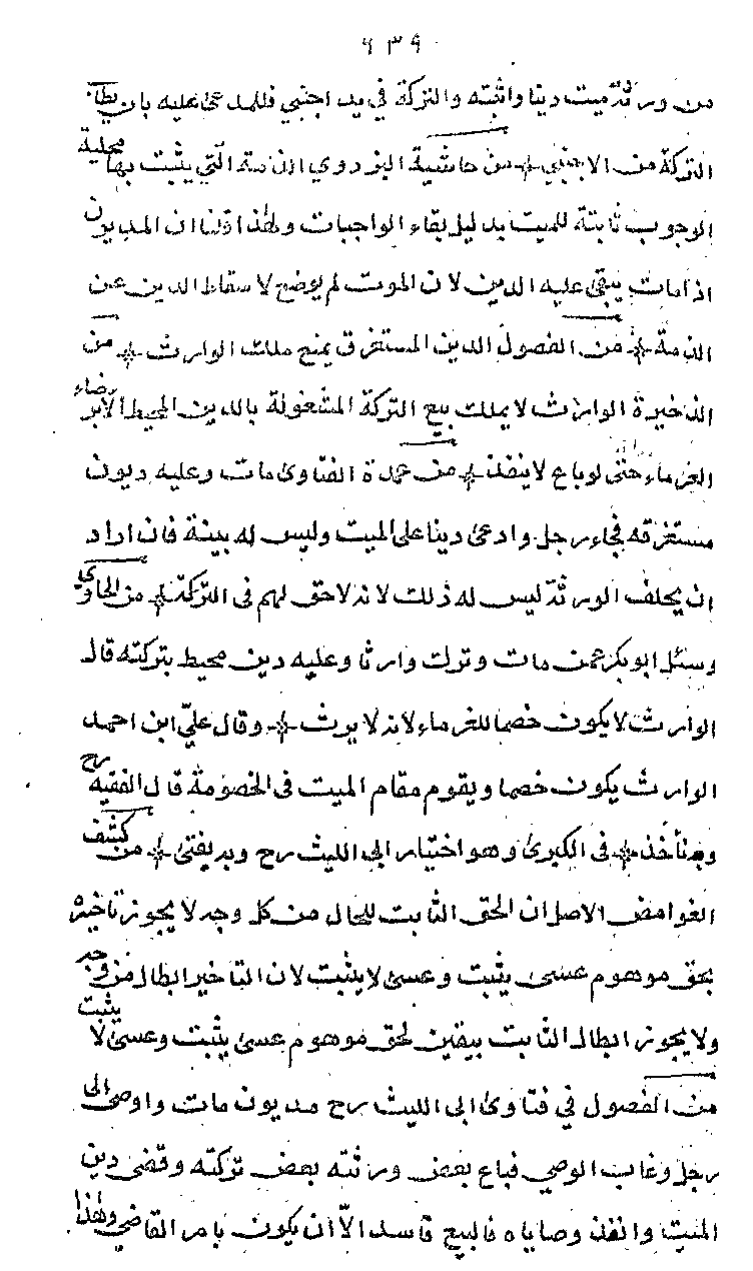 ٦٣٩
من ورثة ميت دينا واثبته والتركة في يد اجنبي فللمدعى عليه بان يطا
التركة من الاجنبي * من حاشية البزدوي الذمة التي يثبت بها محلية
الوجوب ثابتة للميت بدليل بقاء الواجبات ولهذا قلنا ان المديون
اذا مات يبقى عليه الدين لان الموت لم يوضع لاسقاط الدين عن
الذمة * من الفصول الدين المستغرق يمنع ملك الوارث * من
الذخيرة الوارث لا يملك بيع التركة المشغولة بالدين المحيط الا برضاء
الغرماء حتى لو باع لا ينفذ * من عمدة الفتاوى مات وعليه ديون
مستغرقه فجاء رجل وادعى دينا على الميت وليس له بينة فان اراد
ان يحلف الورثة ليس له ذلك لانه لا حق لهم فى التركة * من الحاوي
وسئل ابو بكر عمن مات وترك وارثا وعليه دين محيط بتركته قال
الوارث لا يكون خصما للغرماء لانه لا يرث * وقال علي ابن احمد
الوارث يكون خصما ويقوم مقام الميت فى الخصومة قال الفقيه رح
وبه نأخذ * فى الكبرى وهو اختيار ابى الليث رح وبه يفتى * من كشف
الغوامض الاصل ان الحق الثابت للحال من كل وجه لا يجوز تاخيره
بحق موهوم عسى يثبت وعسى لا يثبت لان التاخير ابطال من وجه
ولا يجوز ابطال الثابت بيقين لحق موهوم عسى يثبت وعسى لا يثبت
من الفصول في فتاوى ابى الليث رح مديون مات واوصى الى
رجل وغاب الوصي فباع بعض ورثته بعض تركته وقضى دين
الميت وانفذ وصاياه فالبيع فاسد الا ان يكون بامر القاضي وهذا